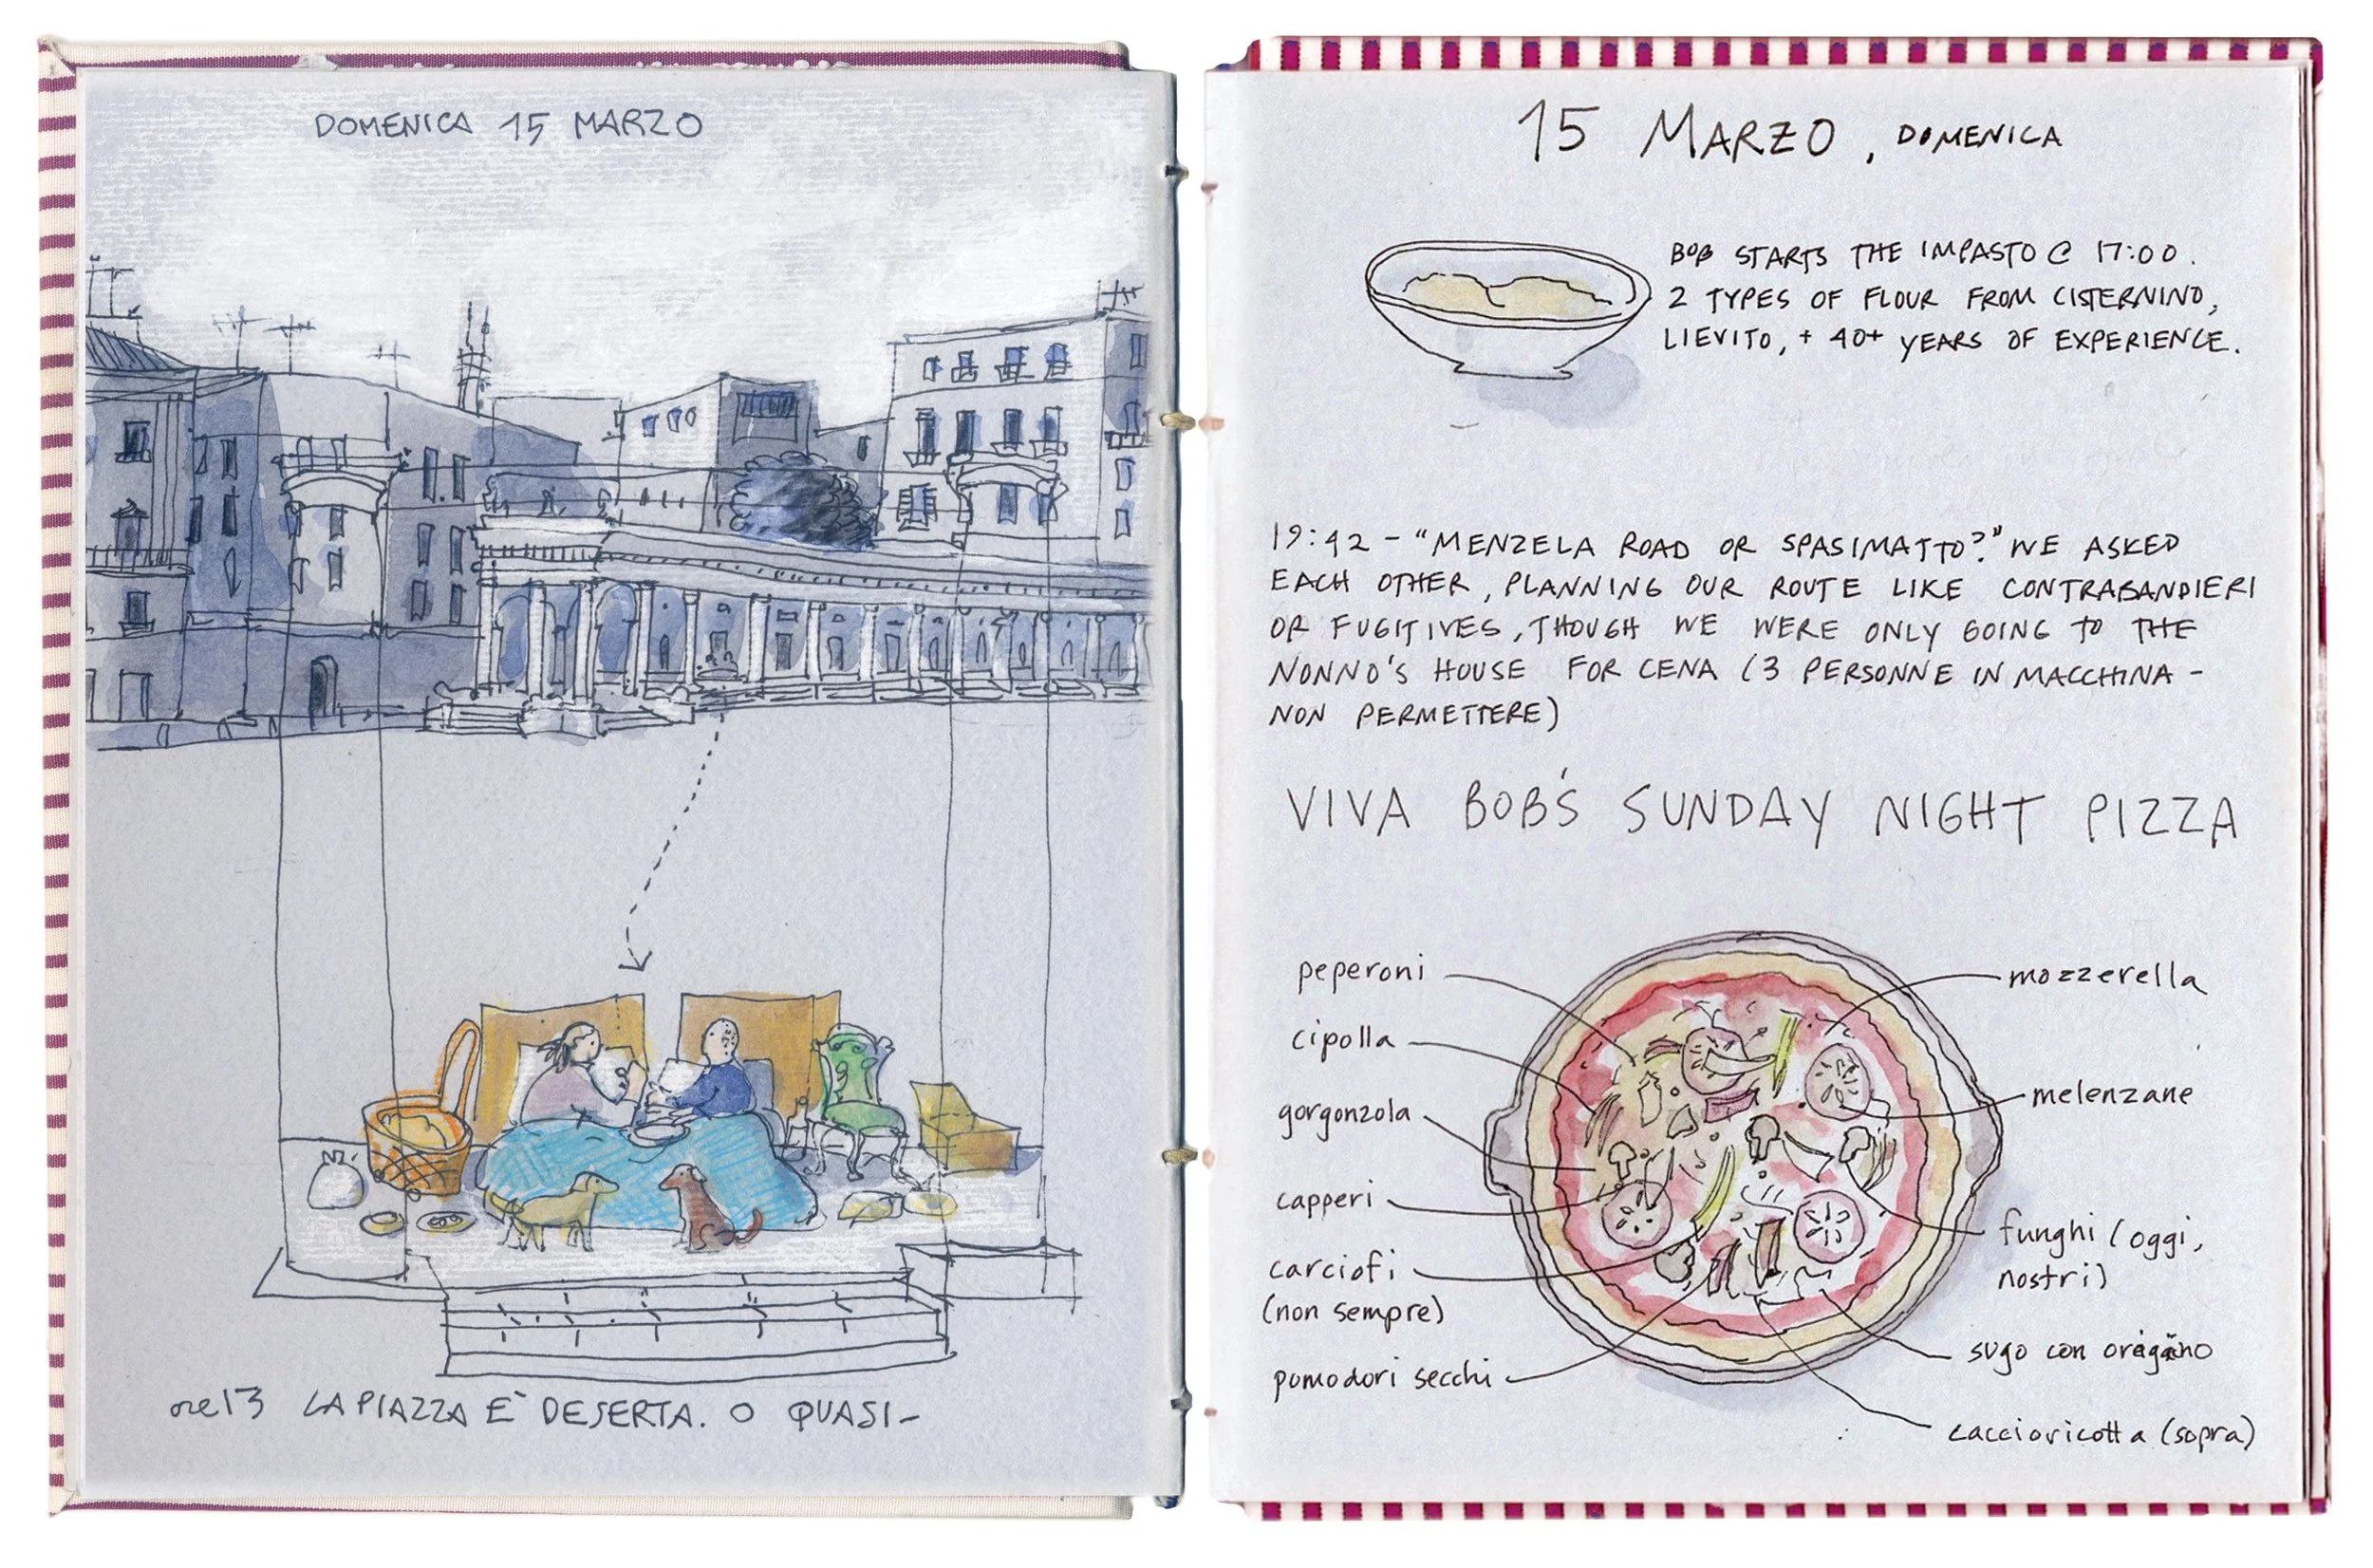 DOMENICA 15 MARZO
ore 13 LA PIAZZA È DESERTA. O QUASI-
15 MARZO, DOMENICA
BOB STARTS THE IMPASTO @ 17:00.
2 TYPES OF FLOUR FROM CISTERNINO,
LIEVITO, + 40+ YEARS OF EXPERIENCE.
19:42 - "MENZELA ROAD OR SPASIMATTO?" WE ASKED
EACH OTHER, PLANNING OUR ROUTE LIKE CONTRABANDIERI
OR FUGITIVES, THOUGH WE WERE ONLY GOING TO THE
NONNO'S HOUSE FOR CENA (3 PERSONNE IN MACCHINA -
NON PERMETTERE)
VIVA BOB'S SUNDAY NIGHT PIZZA
peperoni
cipolla
gorgonzola
capperi
carciofi
(non sempre)
pomodori secchi
mozzerella
melenzane
funghi (oggi,
nostri)
sugo con oregano
caccioricotta (sopra)